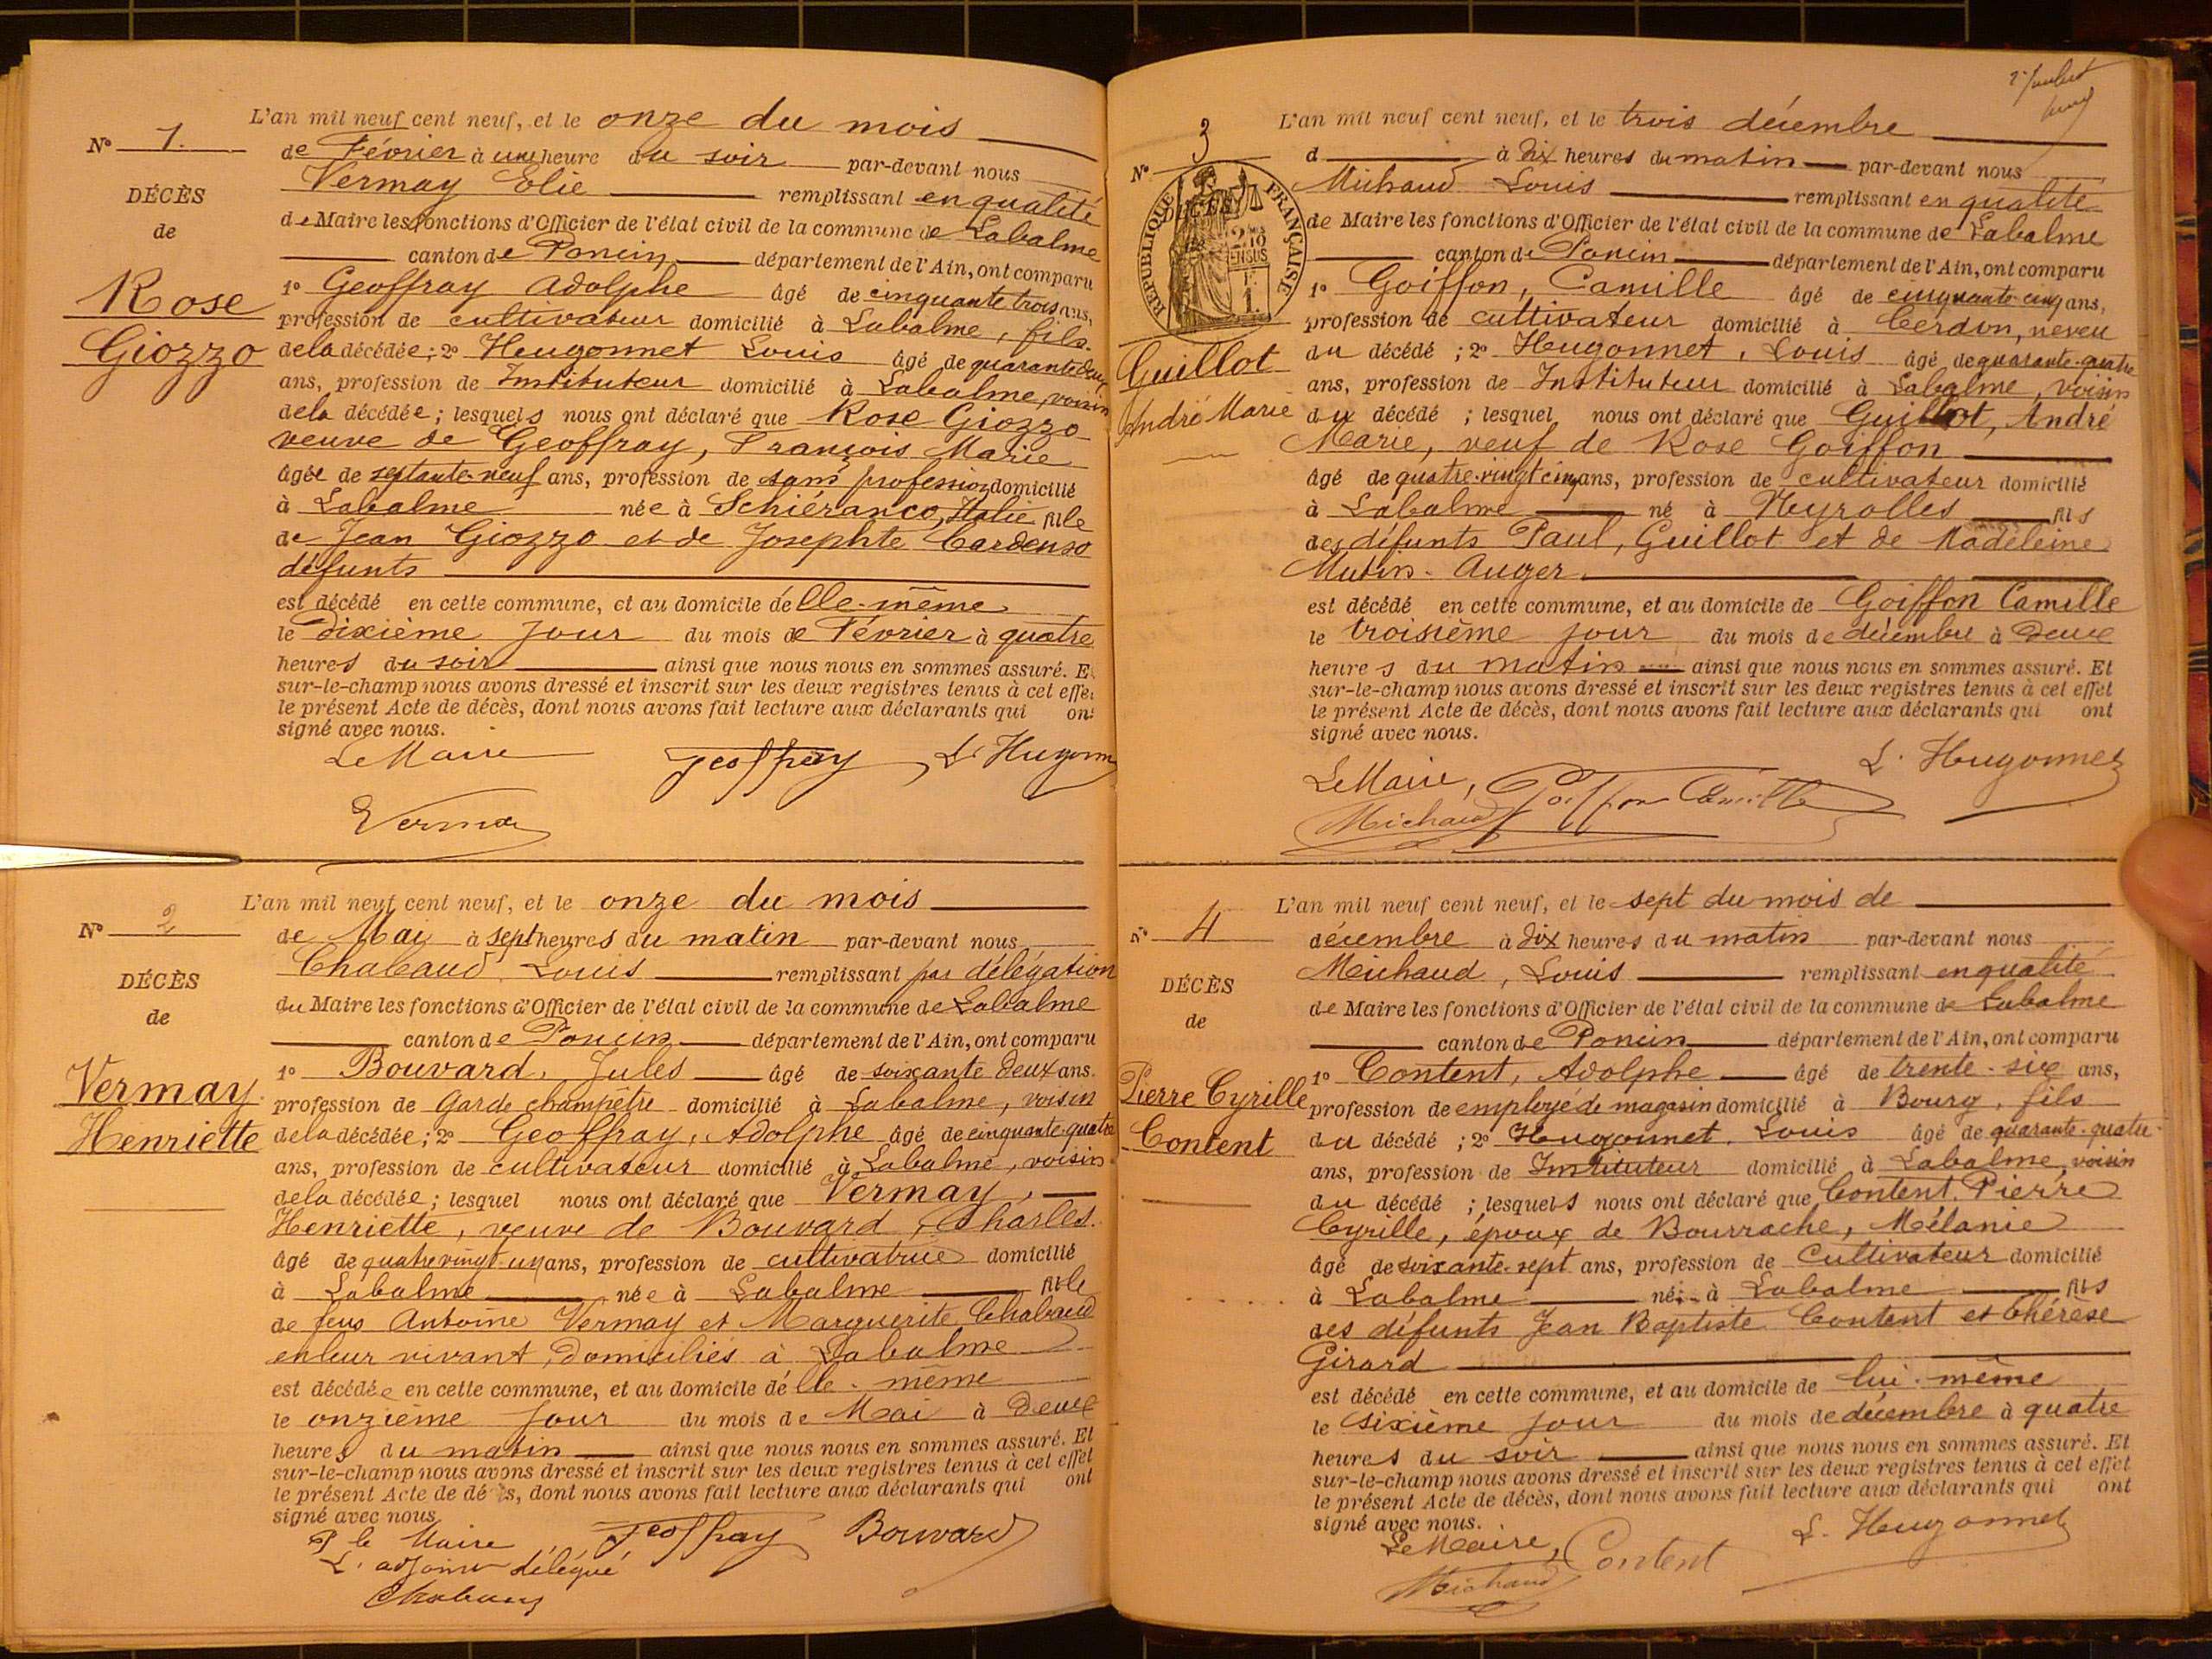 N° 1.
DÉCÈS
de
Rose
Giozzo
L'an mil neuf cent neuf, et le onze du mois
de Février à une heure du soir par-devant nous
Vermay Elie remplissant en qualité
de Maire les fonctions d'Officier de l'état civil de la commune de Labalme
canton de Poncin département de l'Ain, ont comparu
1° Geoffray Adolphe âgé de cinquante trois ans,
profession de cultivateur domicilié à Labalme, fils
de la décédée; 2° Heugonnet Louis âgé de quarante deux
ans, profession de Instituteur domicilié à Labalme, voisin
de la décédée; lesquels nous ont déclaré que Rose Giozzo
veuve de Geoffray, François Marie
âgée de septante-neuf ans, profession de sans profession domicilié
à Labalme née à Schiéranco, Italie fille
de Jean Giozzo et de Josephte Cardenso
défunts
est décédé en cette commune, et au domicile d'elle-même
le dixième jour du mois de Février à quatre
heures du soir ainsi que nous nous en sommes assuré. Et
sur-le-champ nous avons dressé et inscrit sur les deux registres tenus à cet effet
le présent Acte de décès, dont nous avons fait lecture aux déclarants qui ont
signé avec nous.
Le Maire Geoffray L. Hugonn
Vermay
N° 2
DÉCÈS
de
Vermay
Henriette
L'an mil neuf cent neuf, et le onze du mois
de Mai à sept heures du matin par-devant nous
Chabaud Louis remplissant par délégation
du Maire les fonctions d'Officier de l'état civil de la commune de Labalme
canton de Poncin département de l'Ain, ont comparu
1° Bouvard, Jules âgé de soixante deux ans.
profession de Garde champêtre domicilié à Labalme, voisin
de la décédée; 2° Geoffray, Adolphe âgé de cinquante-quatre
ans, profession de cultivateur domicilié à Labalme, voisin
de la décédée; lesquel nous ont déclaré que Vermay,
Henriette, veuve de Bouvard, Charles.
âgé de quatre vingt-un ans, profession de cultivatrice domicilié
à Labalme née à Labalme fille
de feus Antoine Vermay et Marguerite Chabaud
en leur vivant, domiciliés à Labalme
est décédée en cette commune, et au domicile d'elle-même
le onzième jour du mois de Mai à deux
heures du matin ainsi que nous nous en sommes assuré. Et
sur-le-champ nous avons dressé et inscrit sur les deux registres tenus à cet effet
le présent Acte de décès, dont nous avons fait lecture aux déclarants qui ont
signé avec nous
P le Maire Geoffray Bouvard
L'adjoint délégué
Chabaud
N° 3
RÉPUBLIQUE FRANÇAISE
DÉCÈS
de
Guillot
André Marie
L'an mil neuf cent neuf, et le trois décembre
d à dix heures du matin par-devant nous
Michaud Louis remplissant en qualité
de Maire les fonctions d'Officier de l'état civil de la commune de Labalme
canton de Poncin département de l'Ain, ont comparu
1° Goiffon, Camille âgé de cinquante-cinq ans,
profession de cultivateur domicilié à Cerdon, neveu
du décédé; 2° Heugonnet, Louis âgé de quarante-quatre
ans, profession de Instituteur domicilié à Labalme, voisin
du décédé; lesquel nous ont déclaré que Guillot, André
Marie, veuf de Rose Goiffon
âgé de quatre-vingt cinq ans, profession de cultivateur domicilié
à Labalme né à Neyrolles fils
des défunts Paul, Guillot et de Madeleine
Mutin-Auger.
est décédé en cette commune, et au domicile de Goiffon Camille
le troisième jour du mois de décembre à deux
heures du matin ainsi que nous nous en sommes assuré. Et
sur-le-champ nous avons dressé et inscrit sur les deux registres tenus à cet effet
le présent Acte de décès, dont nous avons fait lecture aux déclarants qui ont
signé avec nous.
L. Heugonnet
Le Maire, Goiffon Camille
Michaud
N° 4
DÉCÈS
de
Pierre Cyrille
Content
L'an mil neuf cent neuf, et le sept du mois de
décembre à dix heures du matin par-devant nous
Michaud, Louis remplissant en qualité
de Maire les fonctions d'Officier de l'état civil de la commune de Labalme
canton de Poncin département de l'Ain, ont comparu
1° Content, Adolphe âgé de trente-six ans,
profession de employé de magasin domicilié à Bourg, fils
du décédé; 2° Heugonnet. Louis âgé de quarante-quatre
ans, profession de Instituteur domicilié à Labalme, voisin
du décédé; lesquels nous ont déclaré que Content. Pierre
Cyrille, époux de Bourrache, Mélanie
âgé de soixante-sept ans, profession de Cultivateur domicilié
à Labalme né à Labalme fils
des défunts Jean Baptiste Content et Thérèse
Girard
est décédé en cette commune, et au domicile de lui-même
le sixième jour du mois de décembre à quatre
heures du soir ainsi que nous nous en sommes assuré. Et
sur-le-champ nous avons dressé et inscrit sur les deux registres tenus à cet effet
le présent Acte de décès, dont nous avons fait lecture aux déclarants qui ont
signé avec nous.
Le Maire, Content L. Heugonnet
Michaud